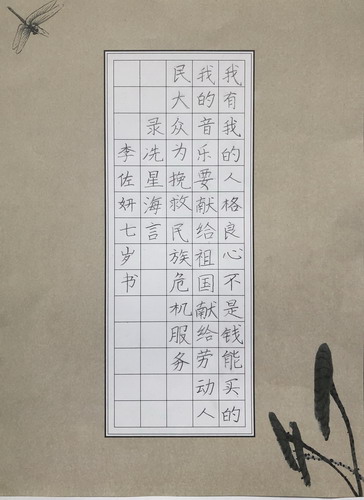 我有我的人格良心不是钱能买的
我的音乐要献给祖国献给劳动人
民大众为挽救民族危机服务
录冼星海言
李佐妍七岁书